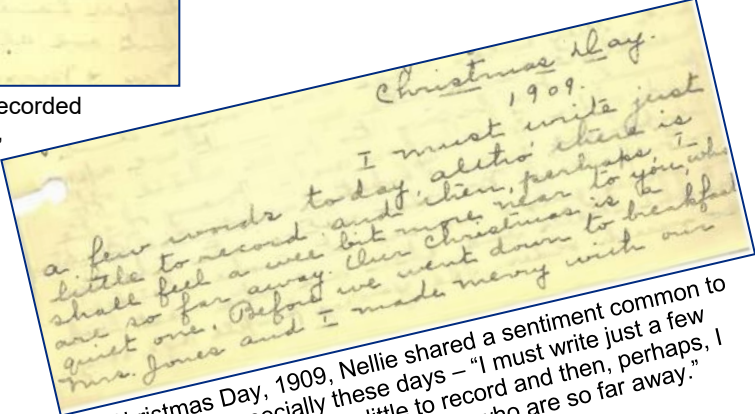 ecorded
Christmas Day.
1909.
I must write just
a few words today, altho' there is
little to record and then, perhaps, I
shall feel a wee bit more near to you, who
are so far away. Our Christmas is a
quiet one. Before we went down to breakfast
Mrs. Jones and I made merry with our
hristmas Day, 1909, Nellie shared a sentiment common to
ecially these days – “I must write just a few
little to record and then, perhaps, I
ho are so far away.”